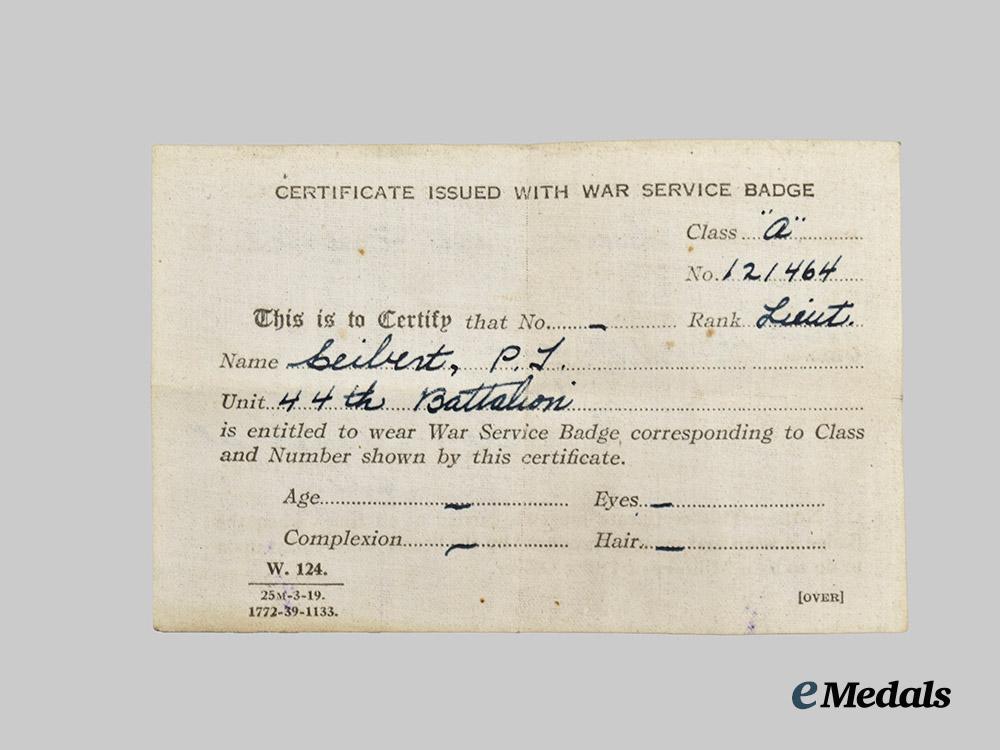 CERTIFICATE ISSUED WITH WAR SERVICE BADGE
Class "A"
No. 121464
This is to Certify that No. – Rank Lieut.
Name Seibert, P. J.
Unit 44th Battalion
is entitled to wear War Service Badge corresponding to Class
and Number shown by this certificate.
Age – Eyes –
Complexion – Hair –
W. 124.
25M-3-19.
1772-39-1133.
[OVER]
eMedals